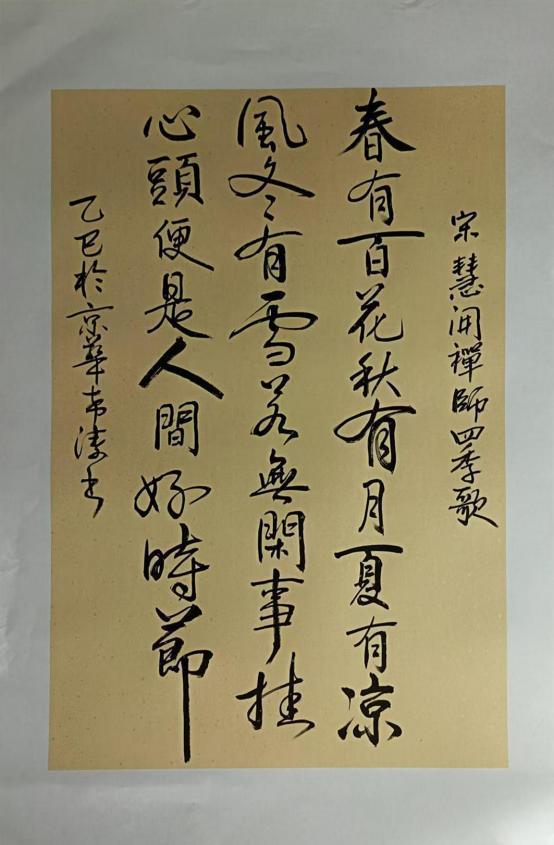 宋慧開禪師四季歌
春有百花秋有月夏有凉
風冬有雪若無閑事挂
心頭便是人間好時節
乙巳於京華韦涛书